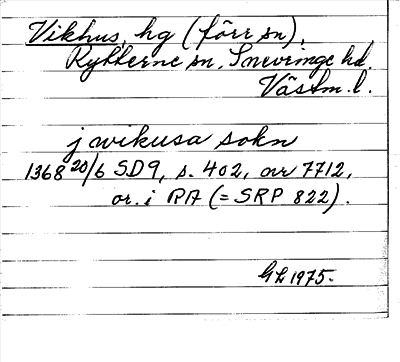 Vikhus, hg (förr sn),
Rytterne sn, Snevringe hd.
Västm. l.
j wikusa sokn
1368 20/6 SD9, s. 402, avr 7712,
or. i RA (= SRP 822).
GL 1975.